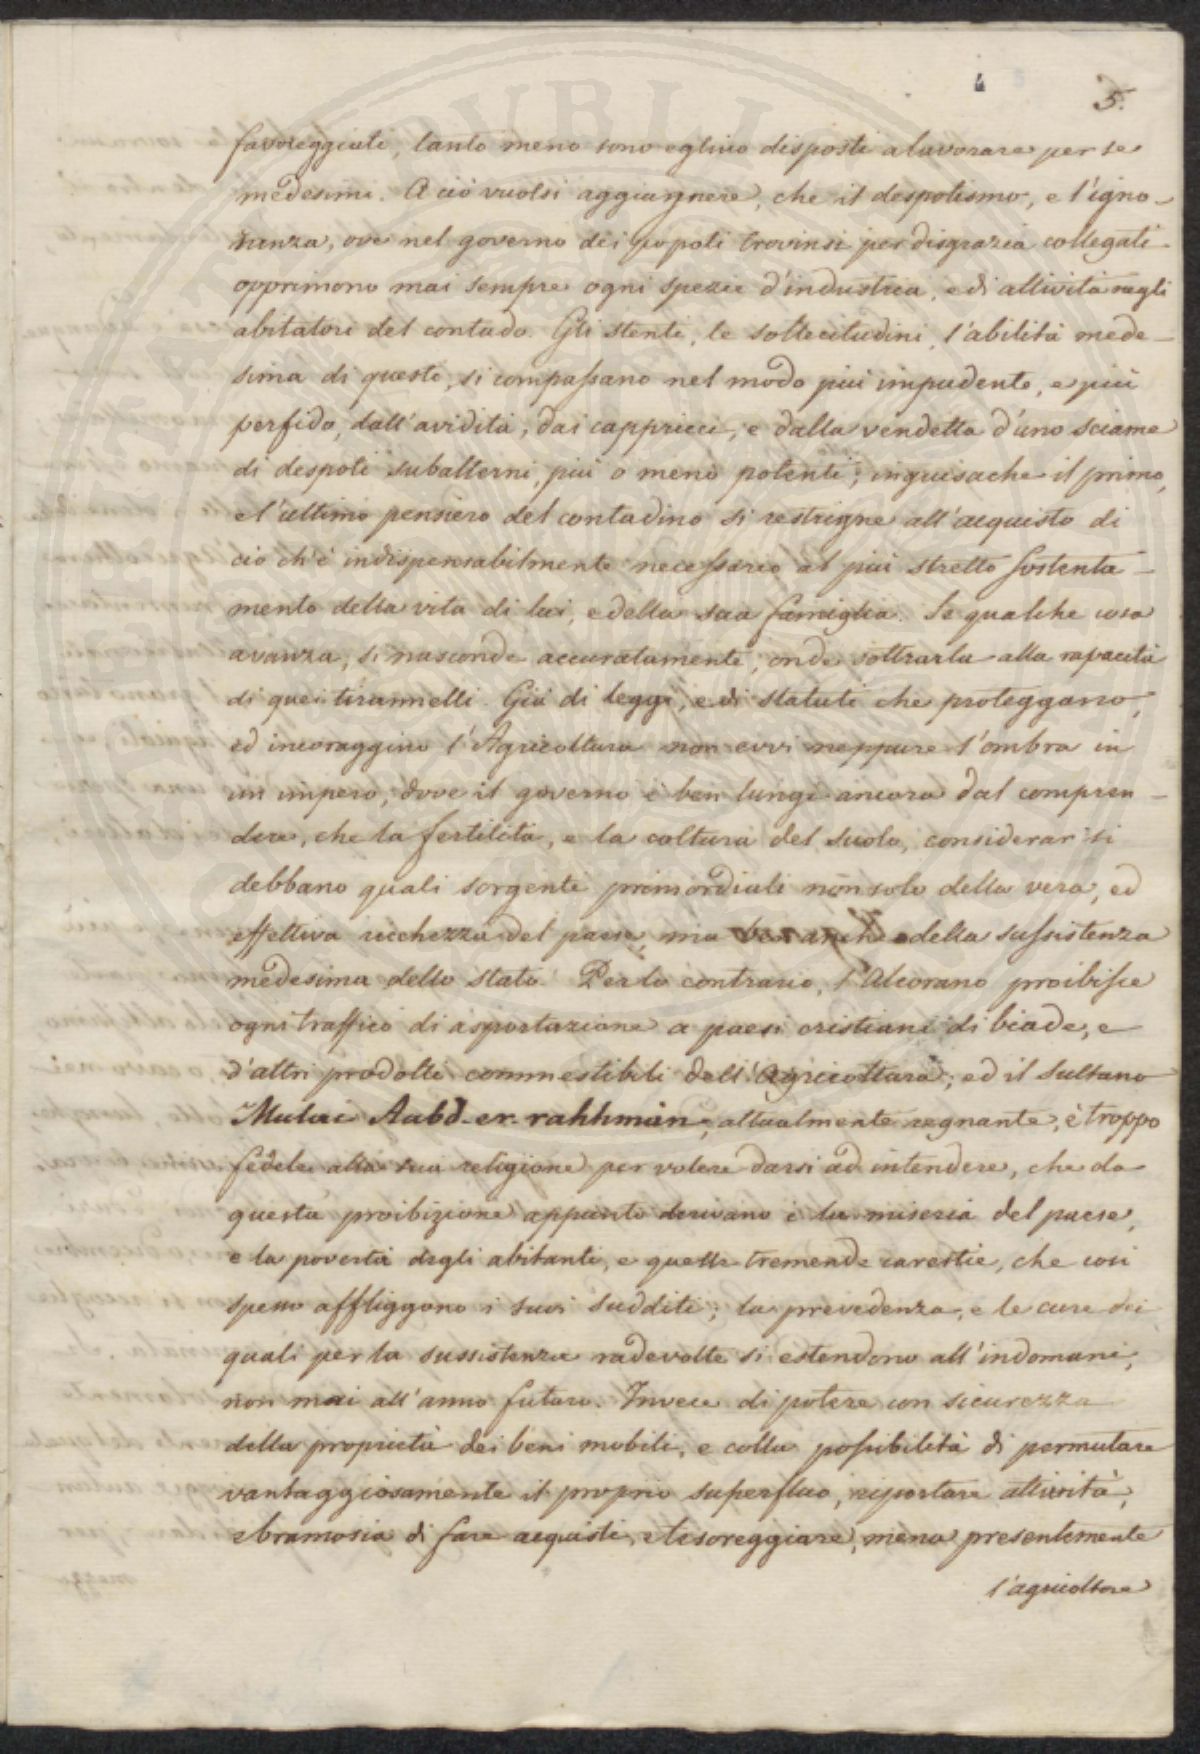 4 5
5.
favoreggiati, tanto meno sono eglino disposti a lavorare per se
medesimi. A ciò vuolsi aggiungnere, che il despotismo, e l'igno-
ranza, ove nel governo dei popoli trovinsi per disgrazia collegati
opprimono mai sempre ogni spezie d'industria, e di attività negli
abitatori del contado. Gli stenti, le sollecitudini, l'abilità mede-
sima di questi, si compassano nel modo più impudente, e più
perfido, dall'avidità, dai cappricci, e dalla vendetta d'uno sciame
di despoti subalterni, più o meno potenti; inguisache il primo,
e l'ultimo pensiero del contadino si restrigne all'acquisto di
ciò ch'è indispensabilmente necessario al più stretto sostenta-
mento della vita di lui, e della sua famiglia. Se qualche cosa
avanza, si nasconde accuratamente, onde sottrarla alla rapacità
di quei tirannelli. Già di leggi, e di statuti che proteggano,
ed incoraggino l'Agricoltura non evvi neppure l'ombra in
un impero, dove il governo è ben lungi ancora dal compren-
dere, che la fertilità, e la coltura del suolo, considerar si
debbano quali sorgenti primordiali non solo della vera, ed
effettiva ricchezza del paese, ma ben anche della sussistenza
medesima dello stato. Per lo contrario, l'Alcorano proibisce
ogni traffico di asportazione a paesi cristiani di biade, e
d'altri prodotti commestibili dell'Agricoltura; ed il Sultano
Mulai Aabd-er-rahhmàn, attualmente regnante, è troppo
fedele alla sua religione per volere darsi ad intendere, che da
questa proibizione appunto derivano e la miseria del paese,
e la povertà degli abitanti, e quelle tremende carestie, che così
spesso affliggono i suoi sudditi; la prevedenza, e le cure dei
quali per la sussistenza radevolte si estendono all'indomani,
non mai all'anno futuro. Invece di potere con sicurezza
della proprietà dei beni mobili, e colla possibilità di permutare
vantaggiosamente il proprio superfluo, riportare attività,
e bramosia di fare acquisti, e tesoreggiare, mena presentemente
l'agricoltore